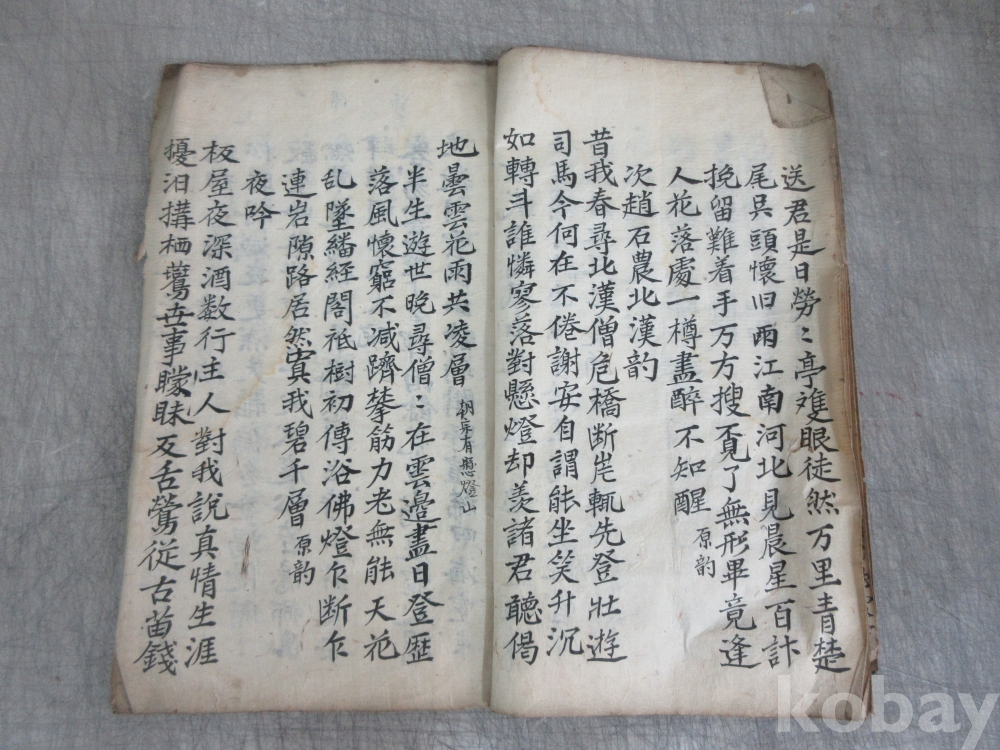 送君是日勞〻亭雙眼徒然万里青楚
尾吳頭懷旧雨江南河北見晨星百計
挽留難着手万方搜覓了無形畢竟逢
人花落處一樽盡醉不知醒 原韵
次趙石農北漢韵
昔我春尋北漢僧危橋断岸輒先登壯遊
司馬今何在不倦謝安自謂能坐笑升沉
如轉斗誰憐寥落對懸燈却羨諸君聽偈
地曇雲花雨共凌層 朝京有懸燈山
半生遊世晚尋僧〻在雲邊盡日登歴
落風懷窮不减躋攀筋力老無能天花
乱墜繙經閣祇樹初傳浴佛燈乍断乍
連岩隙路居然寘我碧千層 原韵
夜吟
板屋夜深酒数行主人對我說真情生涯
擾汩搆栖鷰世事矇昧反舌鶯從古苗錢
kobay